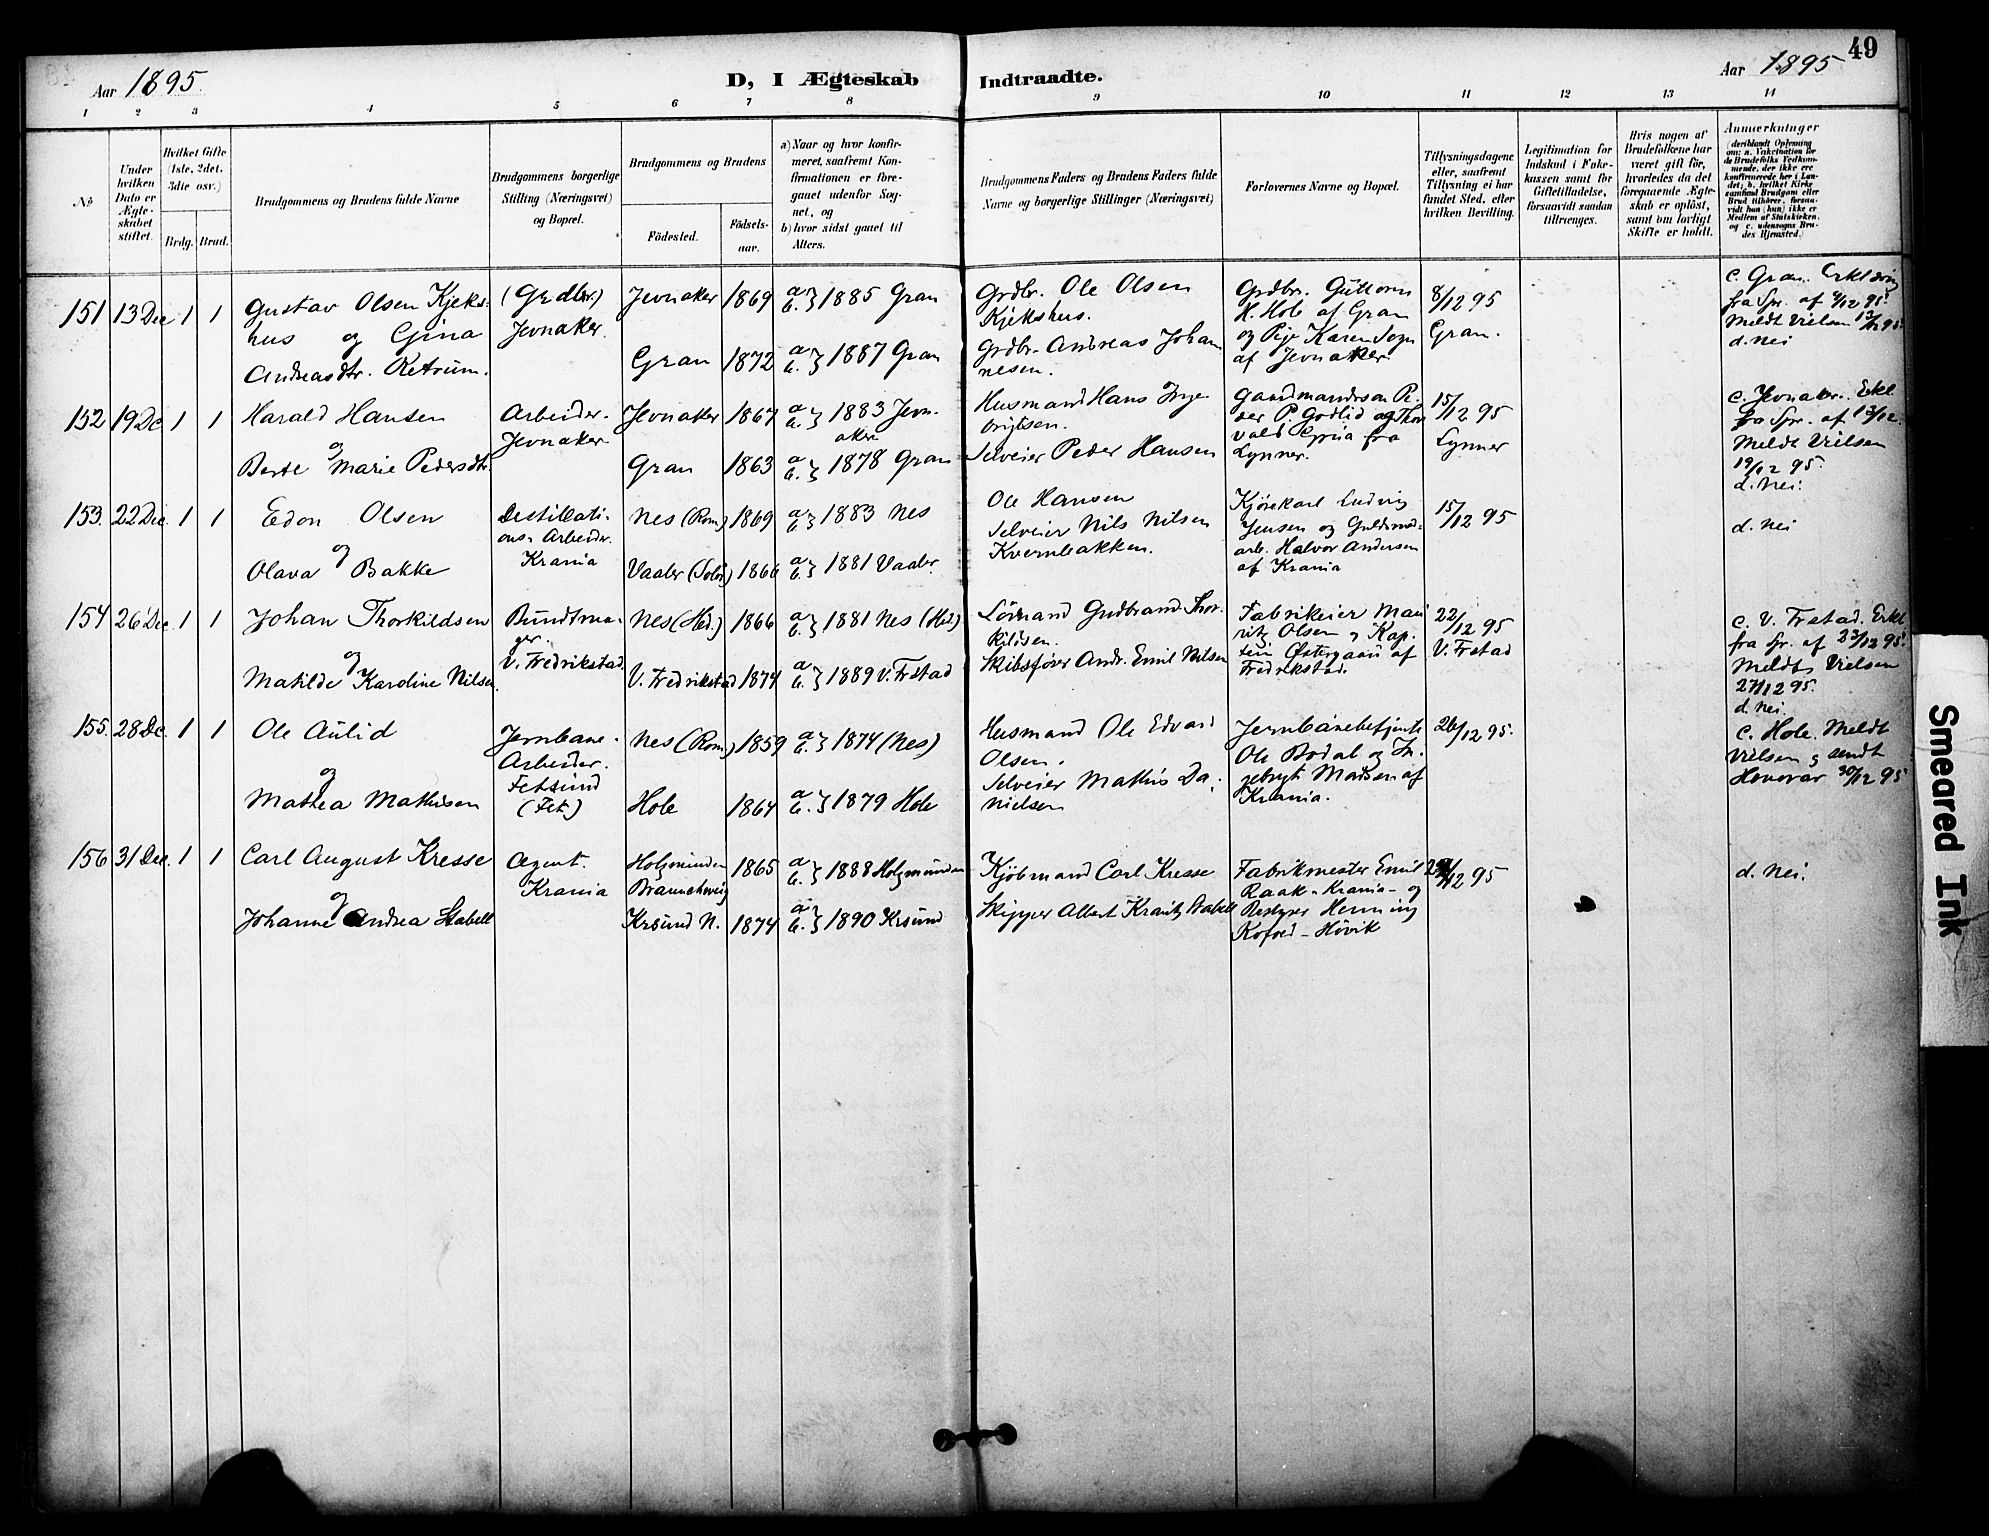 49
Aar 1895.
D, I Ægteskab Indtraadte.
Aar 1895
1 2 3 4 5 6 7 8 9 10 11 12 13 14
No
Under hvilken Dato er Ægteskabet stiftet.
Hvilket Gifte (1ste, 2det, 3die osv.)
Brdg. Brud.
Brudgommens og Brudens fulde Navne
Brudgommens borgerlige Stilling (Næringsvei) og Bopæl.
Brudgommens og Brudens
Födested.
Födsels-aar.
a) Naar og hvor konfir-
meret, saafremt Kon-
firmationen er fore-
gaaet udenfor Sog-
net, og
b) hvor sidst gaaet til
Alters.
Brudgommens Faders og Brudens Faders fulde
Navne og borgerlige Stillinger (Næringsvei)
Forlovernes Navne og Bopæl.
Tillysningsdagene
eller, saafremt
Tillysning ei har
fundet Sted, efter
hvilken Bevilling.
Legitimation for
Indskud i Enke-
kassen samt for
Giftetilladelse,
forsaavidt saadan
tiltrænges.
Hvis nogen af
Brudefolkene har
været gift för,
hvorledes da det
foregaaende Ægte-
skab er oplöst,
samt om lovligt
Skifte er holdt.
Anmerkninger
(deriblandt Oplysning
om: a. Vakcination for
de Brudefolks Vedkom-
mende, der ikke ere
konfirmerede her i Lan-
det; b. hvilket Kirke-
samfund Brudgom eller
Brud tilhører, forsaa-
vidt han (hun) ikke er
Medlem af Statskirken,
og c. udensogns Bru-
des Hjemsted.)
151 13 Dec 1 1
Gustav Olsen Kjeks-
hus og Gina
Andreasdtr. Retrum.
(Grdbr.)
Jevnaker.
Jevnaker 1869 a. b. } 1885 Gran
Gran 1872 a. b. } 1887 Gran
Grdbr. Ole Olsen
Kjekshus.
Grdbr. Andreas Johan
nesen.
Grdbr. Guttorm
H. Hole af Gran
og Pige Karen Sogn
af Jevnaker.
8/12 95
Gran.
c. Gran. Erklæring
fra Spr. af 9/12 95.
Meldt Vielsen 13/12 95.
d. Nei
152 19 Dc. 1 1
Harald Hansen
og
Berte Marie Pedersdtr.
Arbeider.
Jevnaker
Jevnaker 1867 a. b. } 1883 Jevn-
aker
Gran 1863 a. b. } 1878 Gran
Husmand Hans Inge-
brigtsen.
Selveier Peder Hansen
Gaardmandssøn Pe-
der P. Godlid og Thor
vald Gria fra
Lynner.
15/12 95
Lynner
c. Jevnaker. Erkl
fra Spr. af 13/12.
Meldt Vielsen
19/12 95.
d. Nei.
153. 22 Dec. 1 1
Edon Olsen
og
Olava Bakke
Destillati-
ons-Arbeider.
Krania
Nes (Rom) 1869 a. b. } 1883 Nes
Vaaler (Solør) 1866 a. b. } 1881 Vaaler
Ole Hansen
Selveier Nils Nilsen
Kvernbakken.
Kjørekarl Ludvig
Jensen og Guldsmed-
arb. Halvor Andersen
af Krania
15/12 95
d. Nei
154 26 Dec. 1 1
Johan Thorkildsen
og
Matilde Karoline Nilsen.
Bundtma-
ger.
V. Fredrikstad.
Nes (Hed.) 1866 a. b. } 1881 Nes (Hed)
V. Fredrikstad 1874 a. b. } 1889 V. Frstad
Lösmand Gudbrand Thor
kildsen.
Skibsfører Andr. Emil Nilsen
Fabrikeier Mau
ritz Olsen og Kap.
tein Østergaard af
Fredrikstad.
22/12 95
V. Frstad
c. V. Frstad. Erkl
fra Spr. af 23/12 95.
Meldt Vielsen
27/12 95.
d. Nei.
155. 28 Dc. 1 1
Ole Aulid
og
Mathea Mathisen
Jernbane-
Arbeider.
Fetsund
(Fet)
Nes (Rom) 1859 a. b. } 1874 (Nes)
Hole 1864 a. b. } 1879 Hole
Husmand Ole Edvard
Olsen.
Selveier Mathis Da-
nielsen
Jernbanebetjent
Ole Bodal og In-
gebrigt Madsen af
Krania.
26/12 95.
c. Hole. Meldt
Vielsen og sendt
Honorar 30/12 95
156 31 Dec. 1 1
Carl August Kresse
og
Johanne Andrea Stabell
Agent.
Krania
Holzminden
Braunschweig 1865 a. b. } 1888 Holzminden
Krsund N. 1874 a. b. } 1890 Krsund
Kjöbmand Carl Kresse
Skipper Albert Krantz Stabell
Fabrikmester Emil
Raak - Krania - og
Bestyrer Henning
Kofoed - Hövik
/12 95
d. Nei.
Smeared Ink